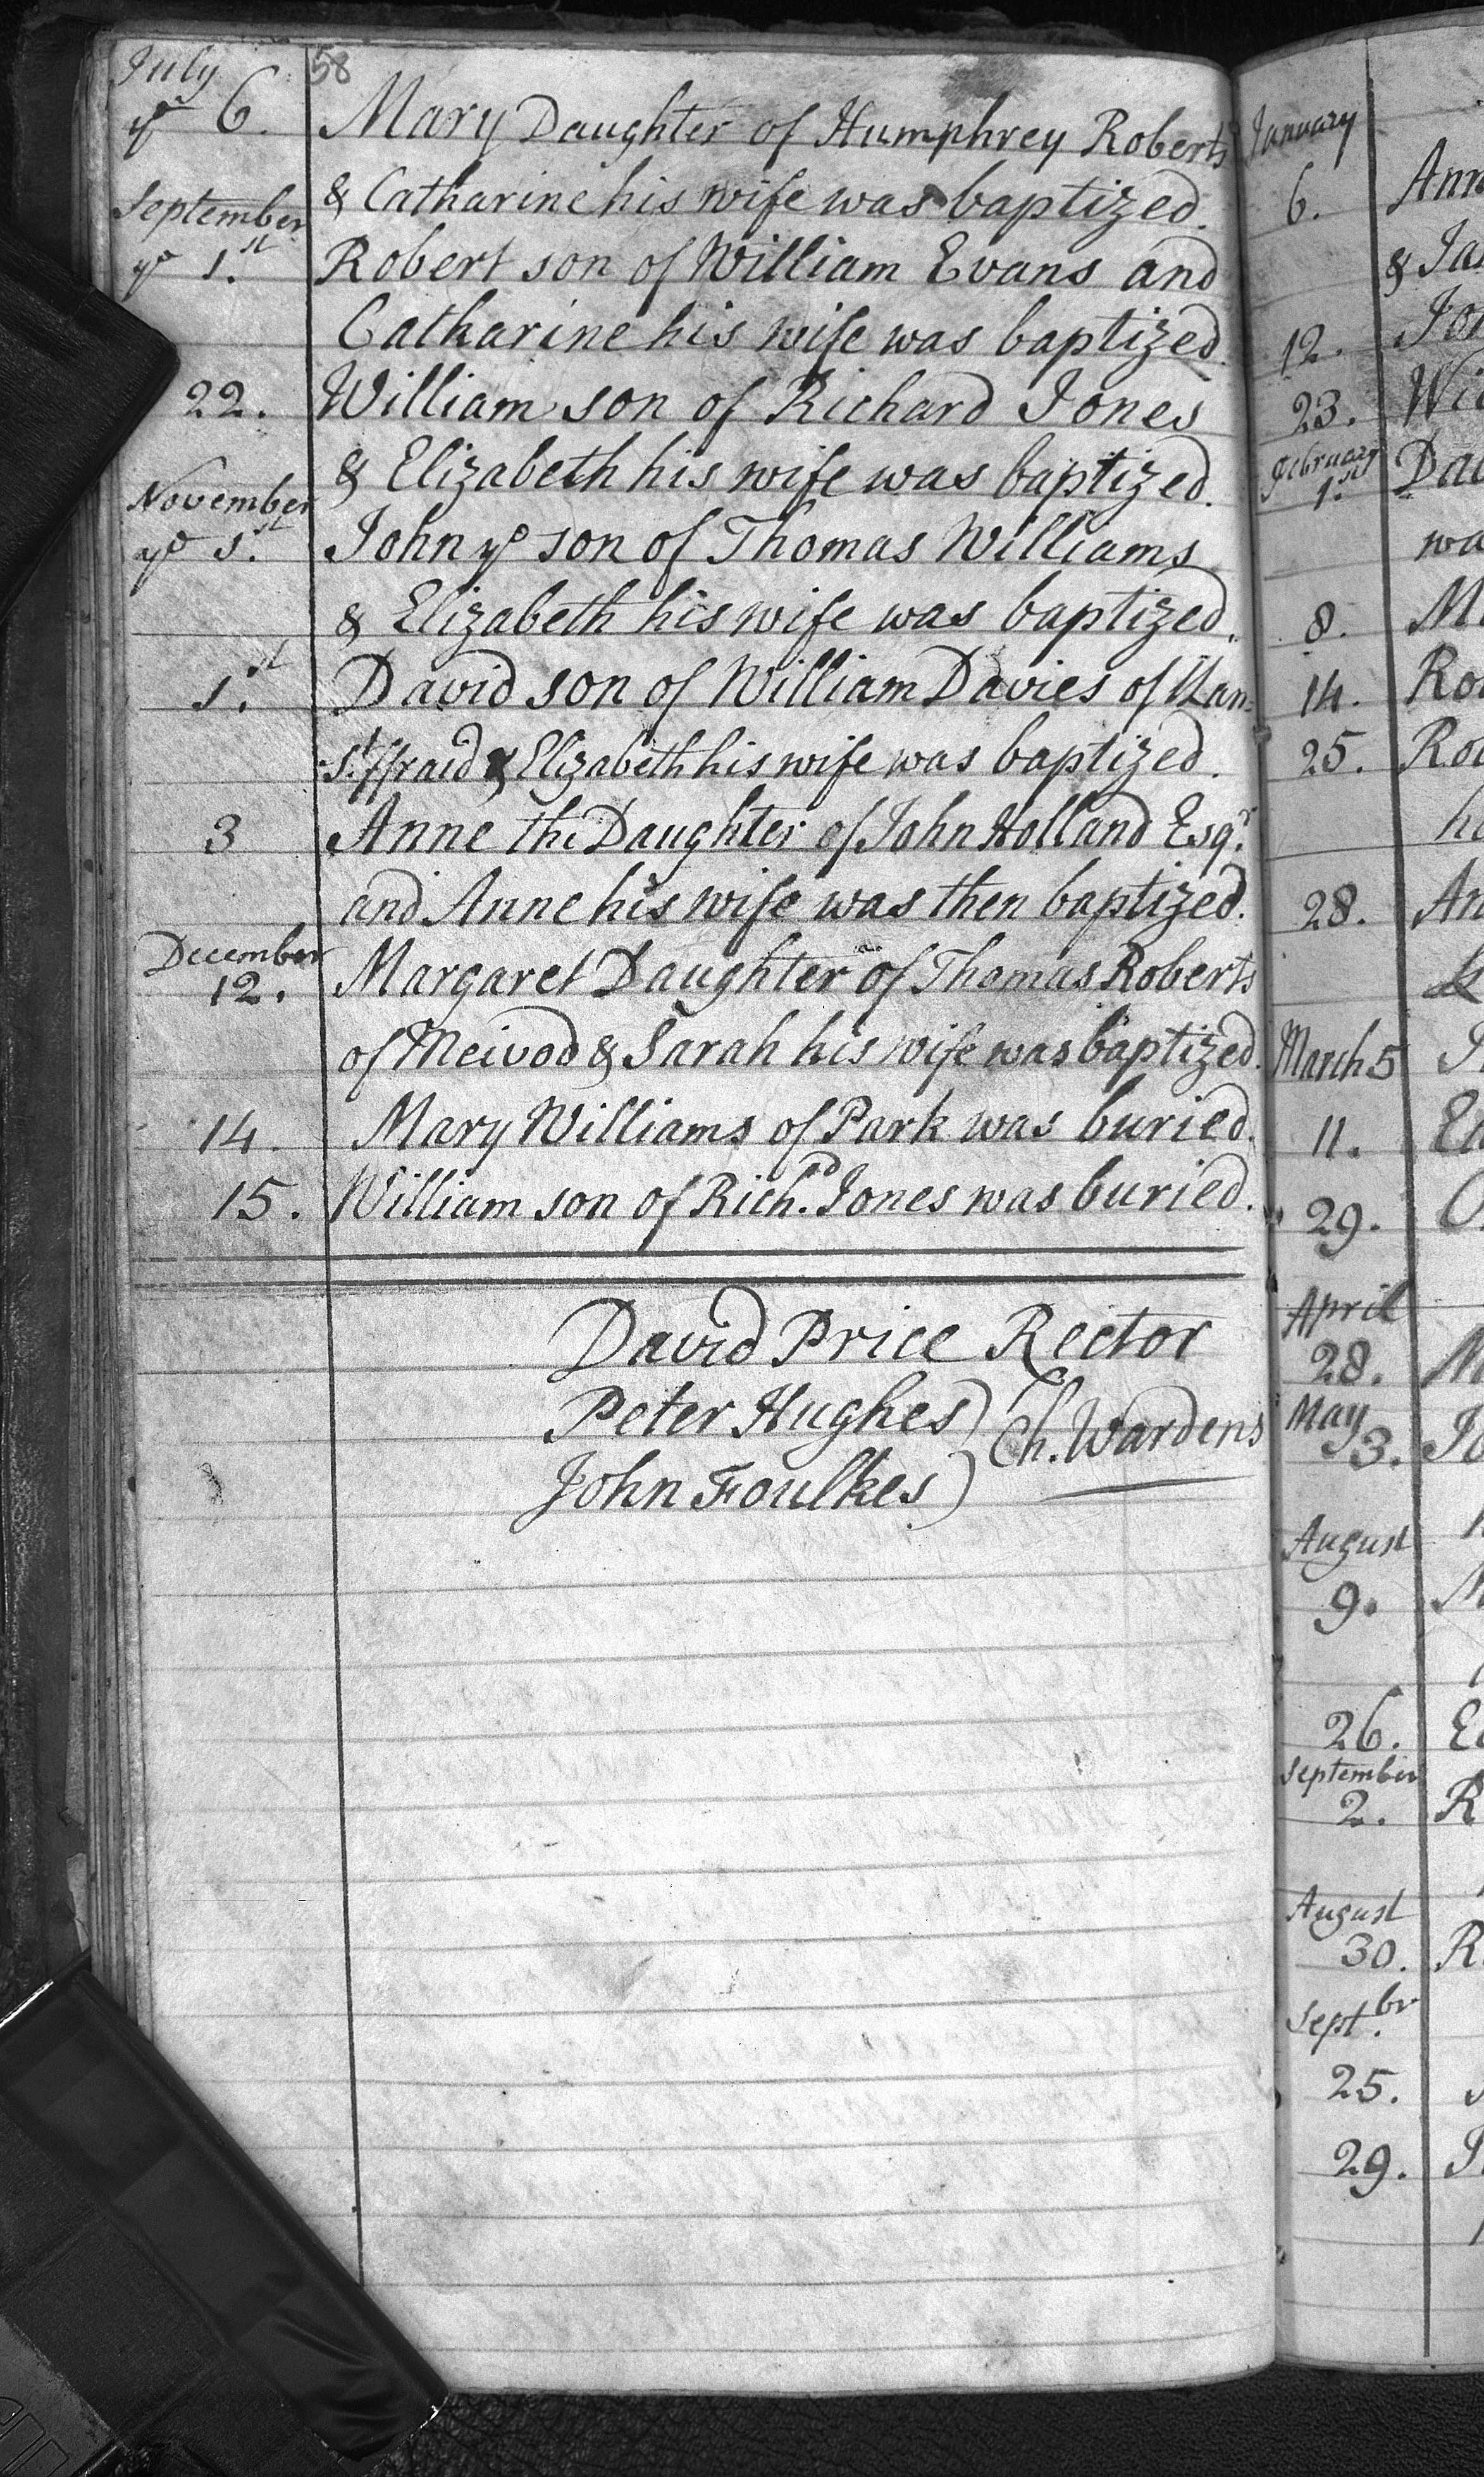 58
July
ye 6. Mary Daughter of Humphrey Roberts
& Catharine his wife was baptized.
September
ye 1.st Robert son of William Evans and
Catharine his wife was baptized.
22. William son of Richard Jones
& Elizabeth his wife was baptized.
November
ye 1.st John ye son of Thomas Williams
& Elizabeth his wife was baptized.
1.st David son of William Davies of Llan-
St. ffraid & Elizabeth his wife was baptized.
3 Anne the Daughter of John Holland Esqr.
and Anne his wife was then baptized.
December
12. Margaret Daughter of Thomas Roberts
of Meivod & Sarah his wife was baptized.
14. Mary Williams of Park was buried.
15. William son of Rich.d Jones was buried.
David Price Rector
Peter Hughes)
Ch. Wardens
John Foulkes)
January
6.
12.
23.
February
1.st
8.
14.
25.
28.
March 5
11.
29.
April
28.
May
3.
August
9.
26.
September
2.
August
30.
Sept.br
25.
29.